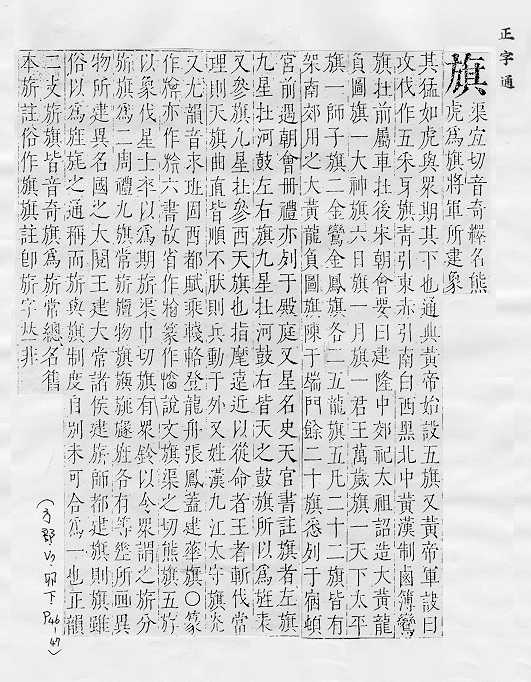 正字通
旗
渠宜切音奇釋名熊
虎爲旗將軍所建象
其猛如虎與眾期其下也通典黃帝始設五旗又黃帝軍設曰
攻伐作五采牙旗靑引東赤引南白西黑北中黃漢制鹵簿鸞
旗在前屬車在後宋朝會要曰建隆中郊祀太祖詔造大黃龍
負圖旗一大神旗六日旗一月旗一君王萬歲旗一天下太平
旗一師子旗二金鸞金鳳旗各二五龍旗五凡二十二旗皆有
架南郊用之大黃龍負圖旗陳于端門餘二十旗悉列于宿頓
宮前遇朝會冊禮亦列于殿庭又星名史天官書註旗者左旗
九星在河鼓左右旗九星在河鼓右皆天之鼓旗所以爲旌表
又參旗九星在參西天旗也指麾遠近以從命者王者斬伐當
理則天旗曲直皆順不肰則兵動于外又姓漢九江太守旗光
又尤韻音求班固西都賦乘輚輅登龍舟張鳳蓋建華旗○篆
作亦作六書故省作篆作說文旗渠之切熊旗五斿
以象伐星士卒以爲期旂渠巾切旗有眾鈴以令眾謂之旂分
旂旗爲二周禮九旗常旂旜物旗旟旐旞旌各有等差所画異
物所建異名國之大閱王建大常諸侯建旂師都建旗則旗雖
俗以爲旌旄之通稱而旂與旗制度自別未可合爲一也正韻
二支旂旗皆音奇旗爲旂常總名舊
本旂註俗作旗旗註卽旂字𠀤非
下 P46-47